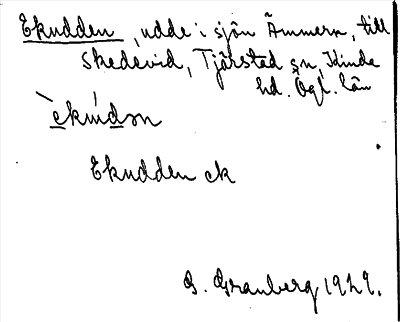 Ekudden, udde i sjön Ämmern, till
Skedevid, Tjärstad sn, Kinda
hd. Ögl. län
Ekudden ek
G. Granberg 1929.